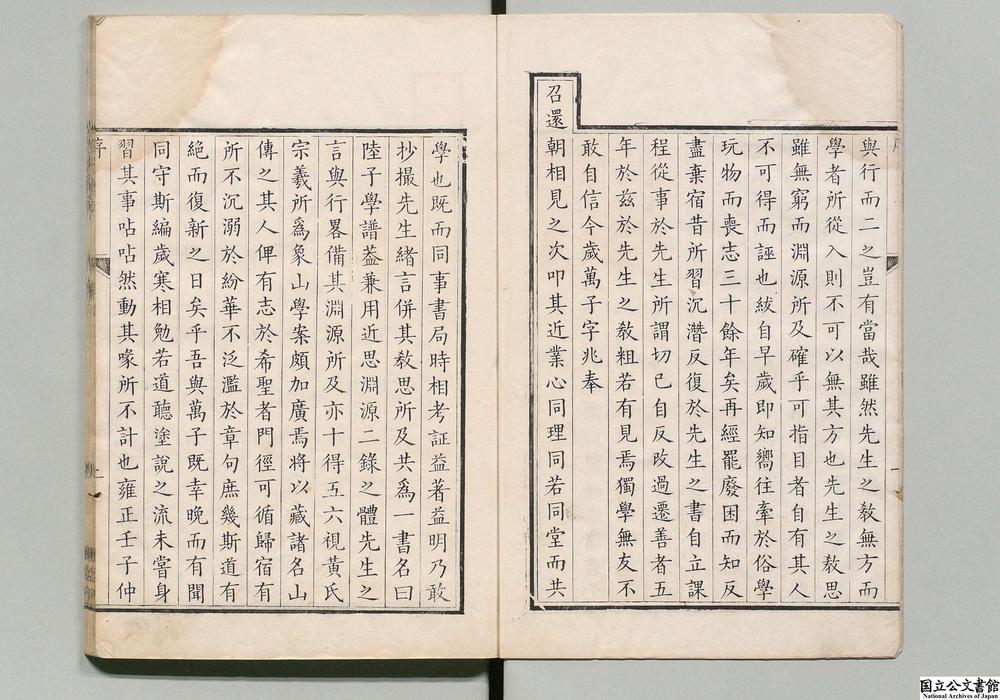 與行而二之豈有當哉雖然先生之敎無方而
學者所從入則不可以無其方也先生之敎思
雖無窮而淵源所及確乎可指目者自有其人
不可得而誣也紱自早歲即知嚮往牽於俗學
玩物而喪志三十餘年矣再經罷廢困而知反
盡棄宿昔所習沉潛反復於先生之書自立課
程從事於先生所謂切己自反改過遷善者五
年於兹於先生之敎粗若有見焉獨學無友不
敢自信今歲萬子字兆奉
召還朝相見之次叩其近業心同理同若同堂而共
學也既而同事書局時相考証益著益明乃敢
抄撮先生緒言併其敎思所及共爲一書名曰
陸子學譜葢兼用近思淵源二錄之體先生之
言與行畧備其淵源所及亦十得五六視黃氏
宗羲所爲象山學案頗加廣焉將以藏諸名山
傳之其人俾有志於希聖者門徑可循歸宿有
所不沉溺於紛華不泛濫於章句庶幾斯道有
絶而復新之日矣乎吾與萬子既幸晚而有聞
同守斯編歲寒相勉若道聽塗說之流未甞身
習其事呫呫然動其喙所不計也雍正壬子仲
序
国立公文書館
National Archives of Japan